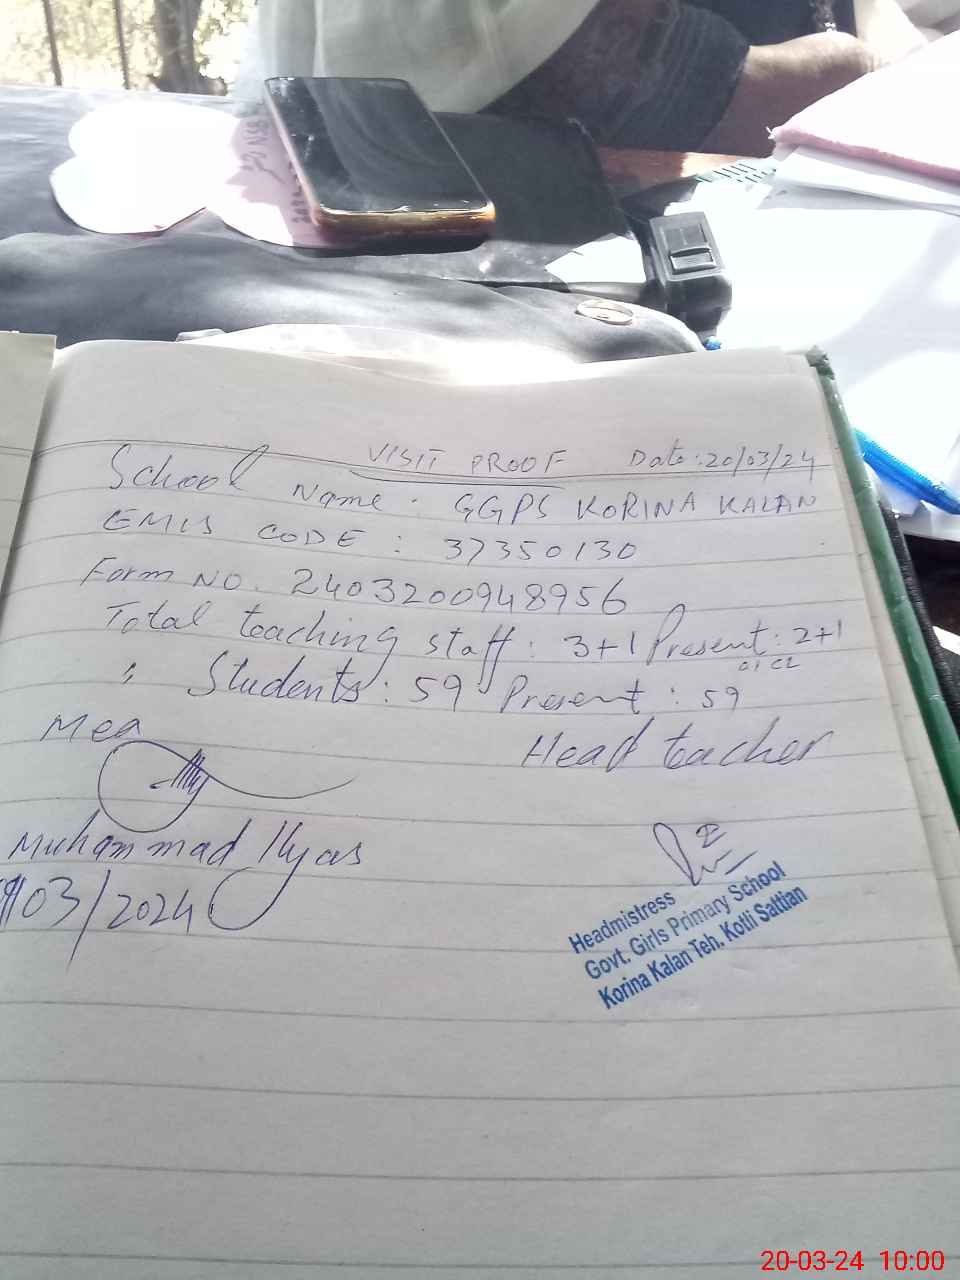 VISIT PROOF Date: 20/03/24
School Name: GGPS KORINA KALAN
EMIS CODE: 37350130
Form NO. 2403200948956
Total teaching staff: 3+1 Present: 2+1
01 CL
" Students: 59 Present: 59
Mea
Head teacher
Muhammad Ilyas
03/2024
Headmistress
Govt. Girls Primary School
Korina Kalan Teh. Kotli Sattian
20-03-24 10:00